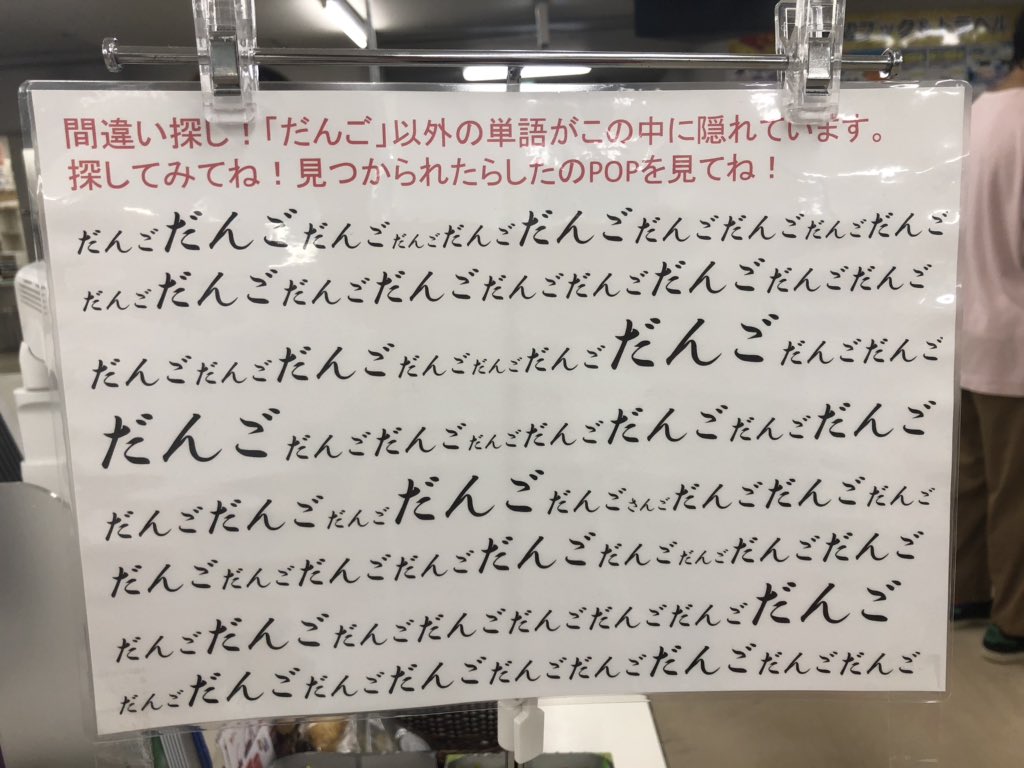 間違い探し！「だんご」以外の単語がこの中に隠れています。
探してみてね！見つかられたらしたのPOPを見てね！
だんごだんごだんごだんごだんごだんごだんごだんごだんごだんご
だんごだんごだんごだんごだんごだんごだんごだんごだんご
だんごだんごだんごだんごだんごだんごだんごだんごだんご
だんごだんごだんごだんごだんごだんごだんごだんご
だんごだんごだんごだんごだんごさんごだんごだんごだんご
だんごだんごだんごだんごだんごだんごだんごだんごだんご
だんごだんごだんごだんごだんごだんごだんごだんご
だんごだんごだんごだんごだんごだんごだんごだんごだんご